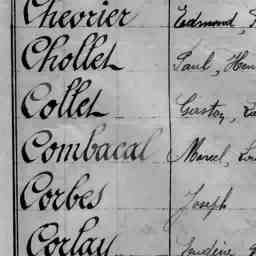 Chevrier Edmond,
Chollet Paul, Hen
Collet Gaston,
Combacal Marcel,
Corbes Joseph
Corlay